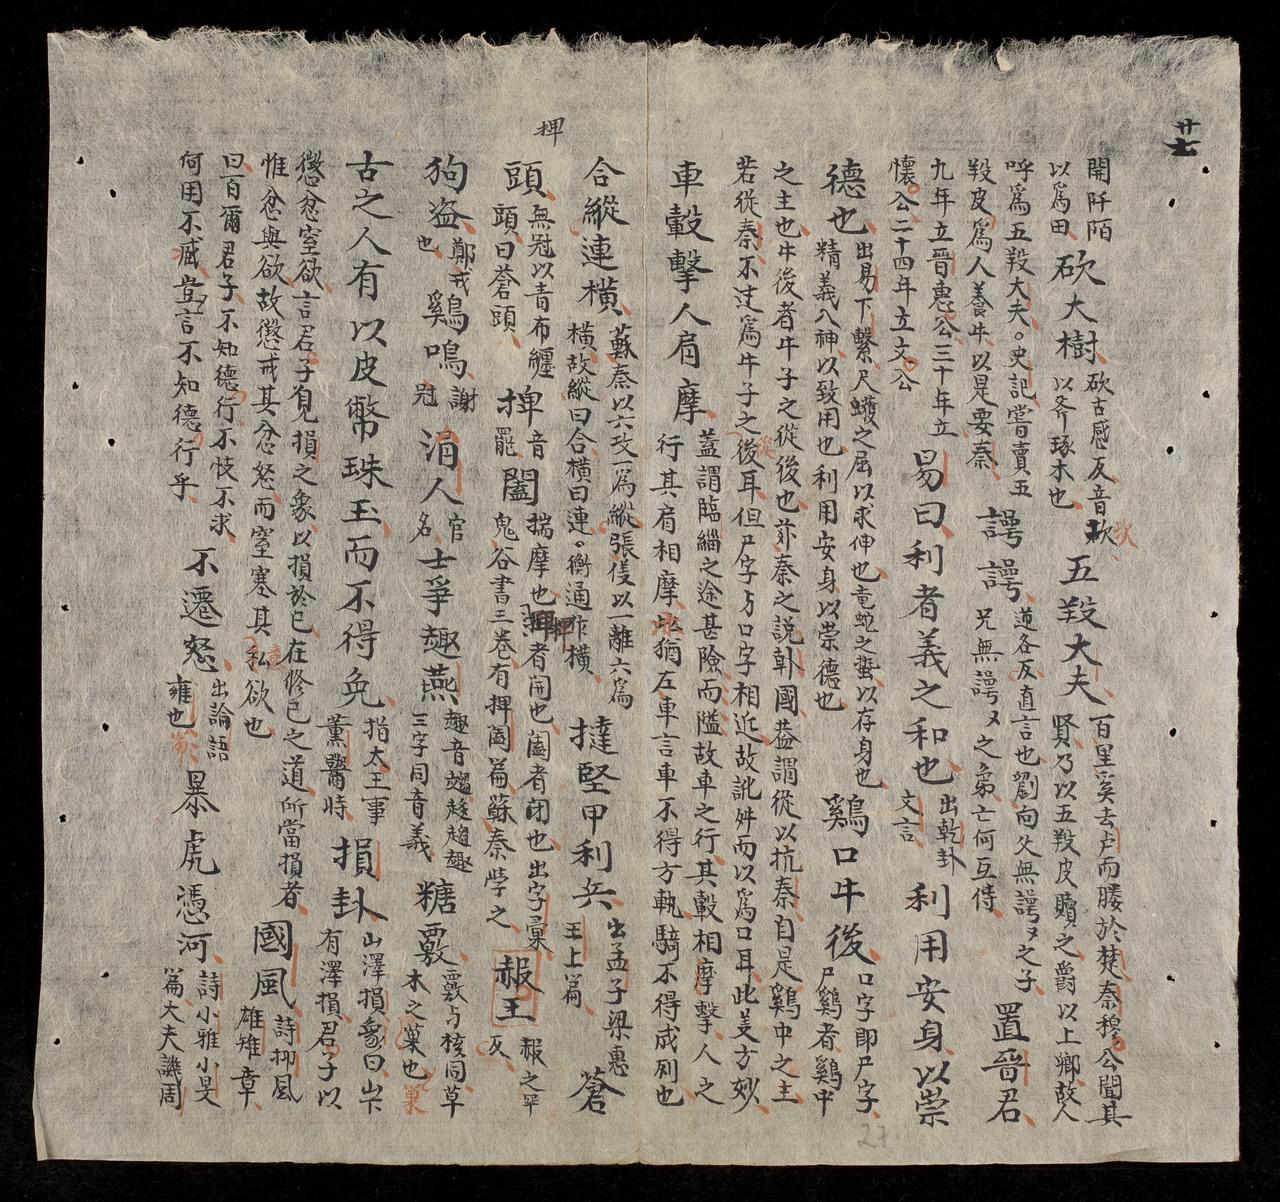 廿七
開阡陌
以為田
砍大樹
砍古感反音欺
以斧琢木也
五羖大夫
百里奚去虞而媵於楚秦穆公聞其
賢乃以五羖皮贖之爵以上卿故人
呼為五羖大夫。史記嘗賣五
羖皮為人養牛以是要秦
諤諤
道各反直言也劉向父無諤〻之子
兄無諤〻之弟亡何互侍
置晉君
九年立晉惠公三十年立
懷公二十四年立文公
易曰利者義之和也
出乾卦
文言
利用安身以崇
德也
出易下繫尺蠖之屈以求伸也竜蛇之蟄以存身也
精義入神以致用也利用安身以崇德也
鷄口牛後
口字即尸字
尸鷄者鷄中
之主也牛後者牛子之從後也非秦之説韓國蓋謂從以抗秦自是鷄中之主
若從秦不过為牛子之後耳但尸字与口字相近故訛舛而以為口耳此美方妙
車轂擊人肩摩
蓋謂臨緇之途甚險而隘故車之行其轂相摩擊人之
行其肩相摩此猶左車言車不得方軌騎不得成列也
合縱連橫
蘇秦以六攻一為縱張儀以一離六為
橫故縱曰合橫曰連〻衡通作橫
撻堅甲利兵
出孟子梁惠
王上篇
蒼
頭
無冠以青布纏
頭曰蒼頭
捭
音
罷
闔
揣摩也捭者開也闔者閉也出字彙
鬼谷書三卷有捭闔篇蘇秦學之
赧王
赧之罕
反
狗盗
鄭戎
也
鷄鳴
謝
冠
涓人
官
名
士爭趣燕
趣音趨趍趨趣
三字同音義
糖覈
覈与核同草
木之菓也
古之人有以皮幣珠玉而不得免
指太王事
薰鬻時
損卦
山澤損象曰山下
有澤損君子以
懲忿窒欲言君子見損之象以損於己在修己之道所當損者
惟忿與欲故懲戒其忿怒而窒塞其私欲也
國風
詩邶風
雄雉章
曰百爾君子不知德行不忮不求
何用不臧豈言不知德行乎
不遷怒
出論語
雍也
暴虎憑河
詩小雅小旻
篇大夫譏周
押
27